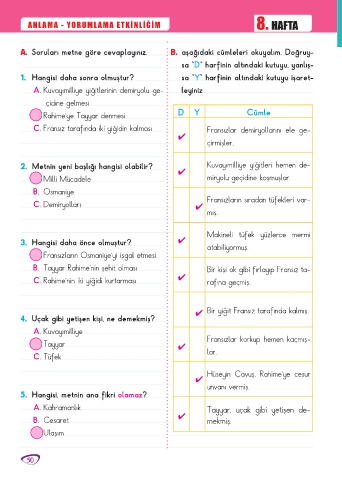 ANLAMA - YORUMLAMA ETKİNLİĞİM
8. HAFTA
A. Soruları metne göre cevaplayınız.
1. Hangisi daha sonra olmuştur?
A. Kuvayımilliye yiğitlerinin demiryolu ge-
çidine gelmesi
Rahime'ye Tayyar denmesi
C. Fransız tarafında iki yiğidin kalması
2. Metnin yeni başlığı hangisi olabilir?
Milli Mücadele
B. Osmaniye
C. Demiryolları
3. Hangisi daha önce olmuştur?
Fransızların Osmaniye'yi işgal etmesi
B. Tayyar Rahime'nin şehit olması
C. Rahime'nin iki yiğidi kurtarması
4. Uçak gibi yetişen kişi, ne demekmiş?
A. Kuvayımilliye
Tayyar
C. Tüfek
5. Hangisi, metnin ana fikri olamaz?
A. Kahramanlık
B. Cesaret
Ulaşım
B. aşağıdaki cümleleri okuyalım. Doğruy-
sa "D" harfinin altındaki kutuyu, yanlış-
sa "Y" harfinin altındaki kutuyu işaret-
leyiniz.
D Y Cümle
Fransızlar demiryollarını ele ge-
çirmişler.
Kuvayımilliye yiğitleri hemen de-
miryolu geçidine koşmuşlar.
Fransızların sıradan tüfekleri var-
mış.
Makineli tüfek yüzlerce mermi
atabiliyormuş.
Bir kişi ok gibi fırlayıp Fransız ta-
rafına geçmiş.
Bir yiğit Fransız tarafında kalmış.
Fransızlar korkup hemen kaçmış-
lar.
Hüseyin Çavuş, Rahime'ye cesur
unvanı vermiş.
Tayyar, uçak gibi yetişen de-
mekmiş.
50